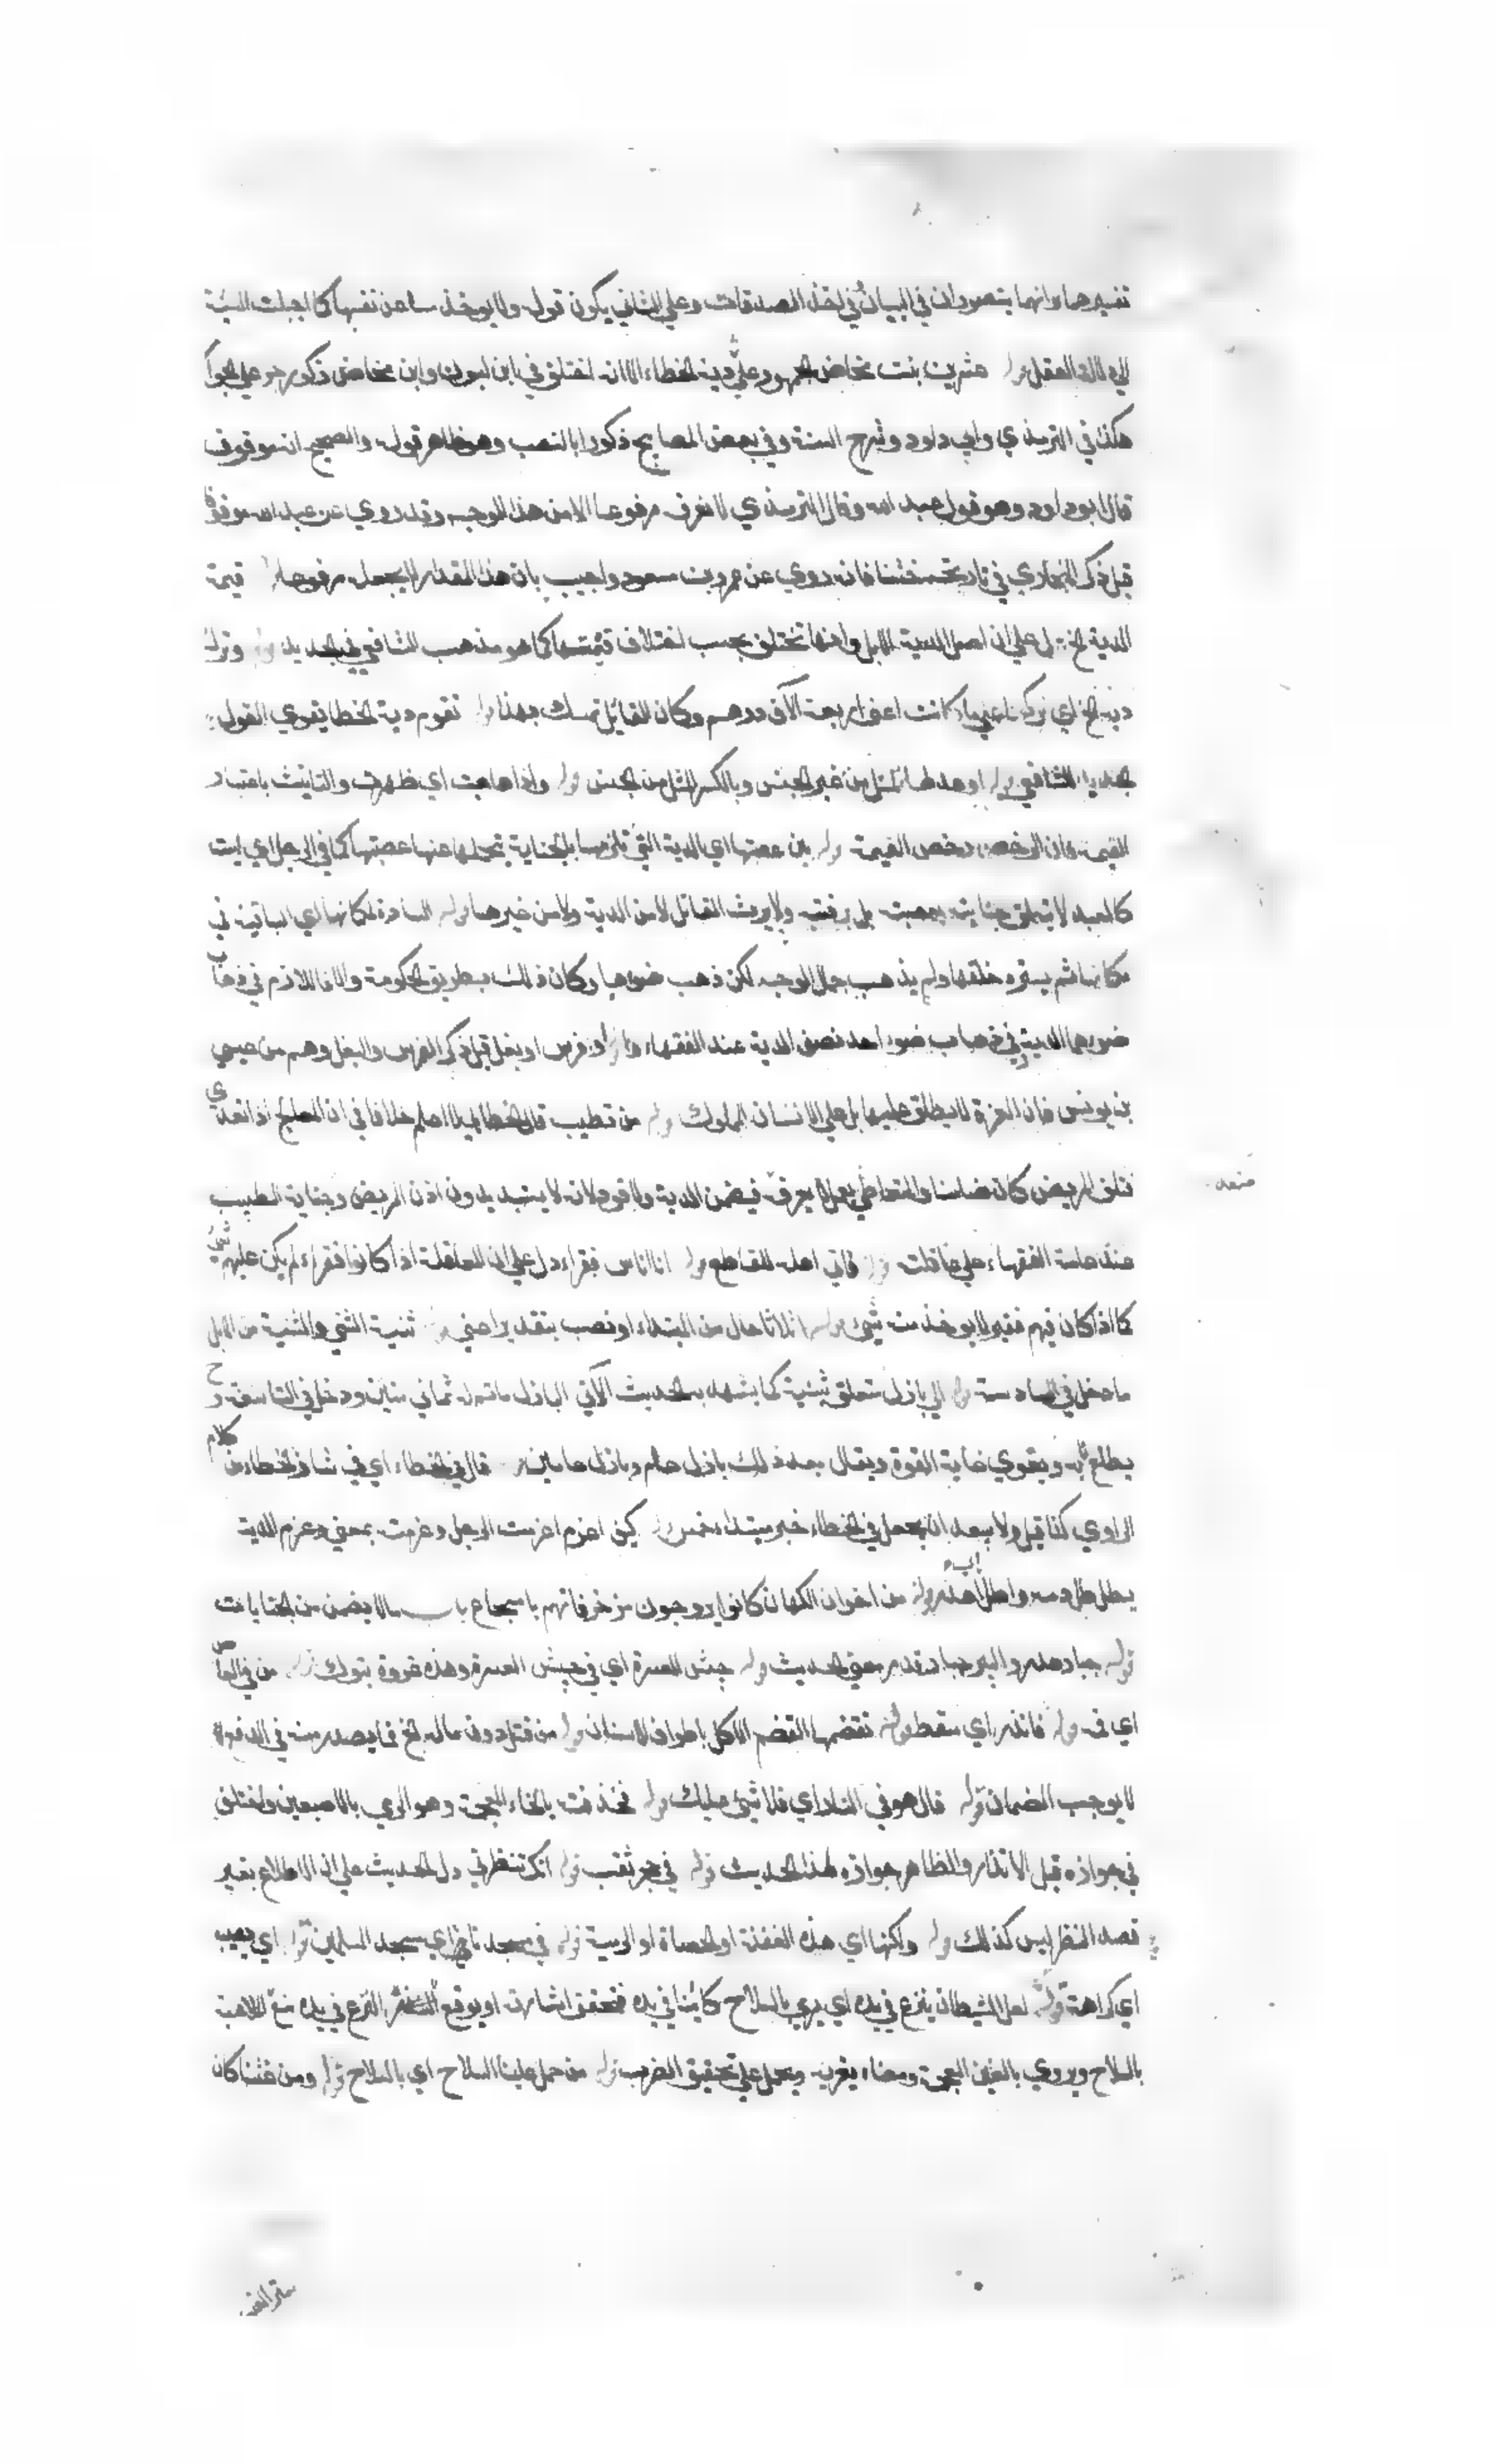 تفسيرها وانهما يتصوران في البيان في اخذ الصدقات وعلي الثاني يكون قوله ولا يوخذ عن نفسها كما
الي العقل قوله عشرين بنت مخاض الجمهور علي دية الخطاء الا انه اختلف في ابن لبون وابن مخاض ذكور جر علي الجوا
هكذا في الترمذي وابي داود وشرح السنة وفي بعض المصابيح ذكورا بالنصب وهو ظاهر قوله والصحيح انه موقوف
قال ابو داود وهو قول عبد الله وقال الترمذي لا نعرفه مرفوعا الا من هذا الوجه وقد روي عن عبد الله موقوفا
قيل ذكر البخاري في تاريخه فانه روي عن عمر وبن مسعود واجيب بان هذا لا يجعل مرفوعا قيمة
الدية الخ دل علي ان اصل الدية الابل وانها تختلف بحسب اختلاف قيمتها كما هو مذهب الشافعي في الجديد قوله وترك
دية الخ اي تركها علي ما كانت اعني اربعة آلاف درهم وكان القائل تمسك بهذا قوله تقوم دية الخطا يقوي القول
الجديد للشافعي قوله او عدلها المثل من غير الجنس وبالكسر المثل من الجنس قوله واذا هاجت اي ظهرت والتانيث باعتبار
القيمة فان الرخص رخص القيمة قوله بين عصبتها اي الدية التي تلزمها بالجناية تتحملها عنها عصبتها كما في الرجل اي ليست
كالعبد لا يتعلق جنايته بعصبته بل برقبته ولا يرث القاتل لا من الدية ولا من غيرها قوله السادة لمكانها اي الباقية في
مكانها لم يستره خلقها ولم يذهب جمال الوجه لكن ذهب ضوءها وكان ذلك بطريق الحكومة والا فاللازم في ذهاب
ضوءهما الدية وفي ذهاب ضوء احد نصف الدية عند الفقهاء قوله او فرس او بغل قيل ذكر الفرس والبغل وهم من عيسي
بن يونس فان الغرة لا يطلق عليها بل علي الانسان المملوك قوله من تطبب قال الخطابي لا اعلم خلافا في ان المعالج اذا تعدي
فتلف المريض كان ضامنا والمتعاطي بعمل لا يعرفه فيضمن الدية ولا قود لانه لا يستبد بدون اذن المريض وجناية الطبيب
عند عامة الفقهاء علي عاقلته قوله فاتي اهله للقاطع قوله انا اناس فقراء دل علي ان العاقلة اذا كانوا فقراء لم يكن عليهم شيء
كما اذا كان فيهم فقير لا يوخذ منه شيء قوله اثلاثا حال من المبتداء او نصب بتقدير اعني قوله ثنية الثني والثنية من الابل
ما دخل في السادسة قوله الي بازل متعلق بثنية كما يشهد به الحديث الآتي البازل ما تم له ثماني سنين ودخل في التاسعة وح
يطلع نابه ويقوي غاية القوة ويقال بعد ذلك بازل عام وبازل عامين قوله قال في الخطاء اي في شان الخطاء من كلام
الراوي كذا قيل ولا يبعد ان يجعل في الخطاء خبر مبتداء خمس قوله كيف اغرم اغرمت الرجل وغرمته بمعني وغرم الدية
يطل طل دمه واطل اي هدر قوله من اخوان الكهان كانوا يروجون مزخرفاتهم باسجاع باب ما لا يضمن من الجنايات
قوله جبار هدر والبير جبار تقدم معني الحديث قوله جيش العسرة اي في جيش العسرة وهذه غزوة تبوك قوله من في العاض
اي فمه قوله فاندر اي سقط قوله تقضمها القضم الاكل باطراف الاسنان قوله من قتل دون ماله الخ فما يصدر منه في الدفع
لا يوجب الضمان قوله قال هو في النار اي فلا شيء عليك قوله فخذفته بالخاء المعجمة وهو الرمي بالاصبعين واختلف
في جوازه قبل الانذار والظاهر جوازه لهذا الحديث قوله في جحر ثقب قوله انك تنظرني دل الحديث علي ان الاطلاع بغير
قصد النظر ليس كذلك قوله ولكنها اي هذه الفعلة او الحصاة او الرمية قوله في مسجدنا اي مسجد المسلمين قوله اي يصيب
اي كراهة قوله لعل الشيطان ينزع في يده اي يرمي بالسلاح كائنا في يده فتحقق اشارته او يوقع النزع في يده مع الملاعبة
بالسلاح ويروي بالغين المعجمة ومعناه يغريه ويحمل علي تحقيق الضرب قوله من حمل علينا السلاح اي بالسلاح قوله ومن غشنا كان